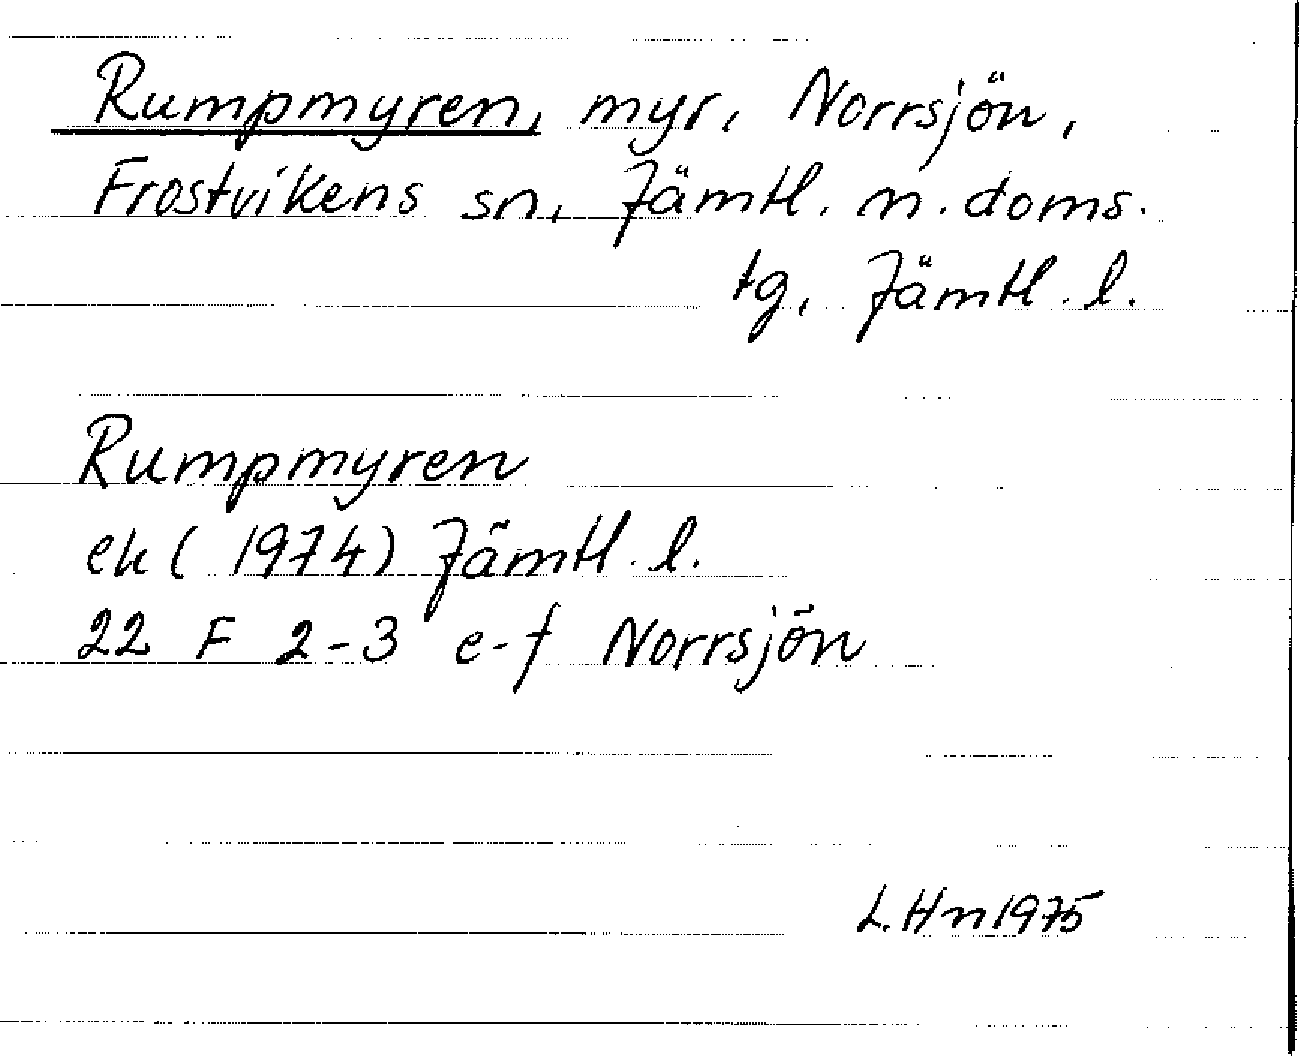 Rumpmyren, myr, Norrsjön,
Frostvikens sn, Jämtl. n. doms.
tg, Jämtl. l.
Rumpmyren
ek (1974) Jämtl. l.
22 F 2-3 e-f Norrsjön
L. Hn 1975